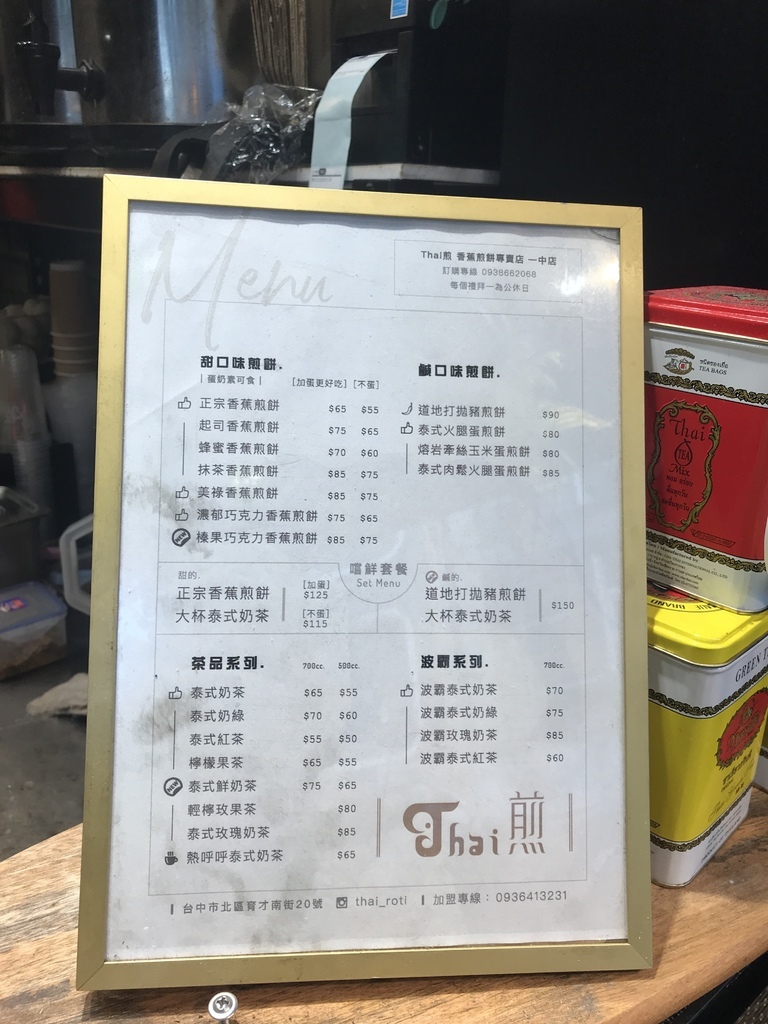 Menu
Thai煎 香蕉煎餅專賣店 一中店
訂購專線 0938662068
每個禮拜一為公休日
甜口味煎餅.
| 蛋奶素可食 | [加蛋更好吃] [不蛋]
正宗香蕉煎餅 $65 $55
起司香蕉煎餅 $75 $65
蜂蜜香蕉煎餅 $70 $60
抹茶香蕉煎餅 $85 $75
美祿香蕉煎餅 $85 $75
濃郁巧克力香蕉煎餅 $75 $65
NEW 榛果巧克力香蕉煎餅 $85 $75
鹹口味煎餅.
道地打拋豬煎餅 $90
泰式火腿蛋煎餅 $80
熔岩牽絲玉米蛋煎餅 $80
泰式肉鬆火腿蛋煎餅 $85
嚐鮮套餐
Set Menu
甜的.
正宗香蕉煎餅 [加蛋] $125
大杯泰式奶茶 [不蛋] $115
鹹的.
道地打拋豬煎餅
大杯泰式奶茶 $150
茶品系列. 700cc. 500cc.
泰式奶茶 $65 $55
泰式奶綠 $70 $60
泰式紅茶 $55 $50
檸檬果茶 $65 $55
NEW 泰式鮮奶茶 $75 $65
輕檸玫果茶 $80
泰式玫瑰奶茶 $85
熱呼呼泰式奶茶 $65
波霸系列. 700cc.
波霸泰式奶茶 $70
波霸泰式奶綠 $75
波霸玫瑰奶茶 $85
波霸泰式紅茶 $60
Thai煎
台中市北區育才南街20號 thai_roti 加盟專線：0936413231
TEA BAGS
Thai
TEA
Mix
BRAND
GREEN